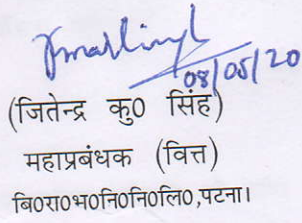 08/05/20
(जितेन्द्र कु0 सिंह)
महाप्रबंधक (वित्त)
बि0रा0भ0नि0नि0लि0,पटना।